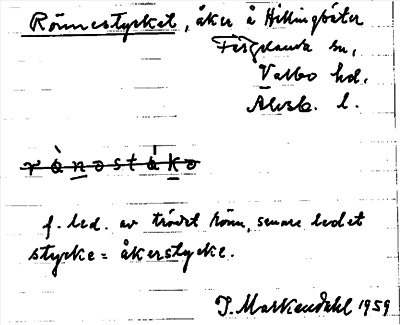 Rönnestycket, åker å Hillingsäter
Färgelanda sn,
Valbo hd.
Älvsb. l.
f. led. av trädet rönn, senare ledet
stycke = åkerstycke.
J. Markendahl 1959